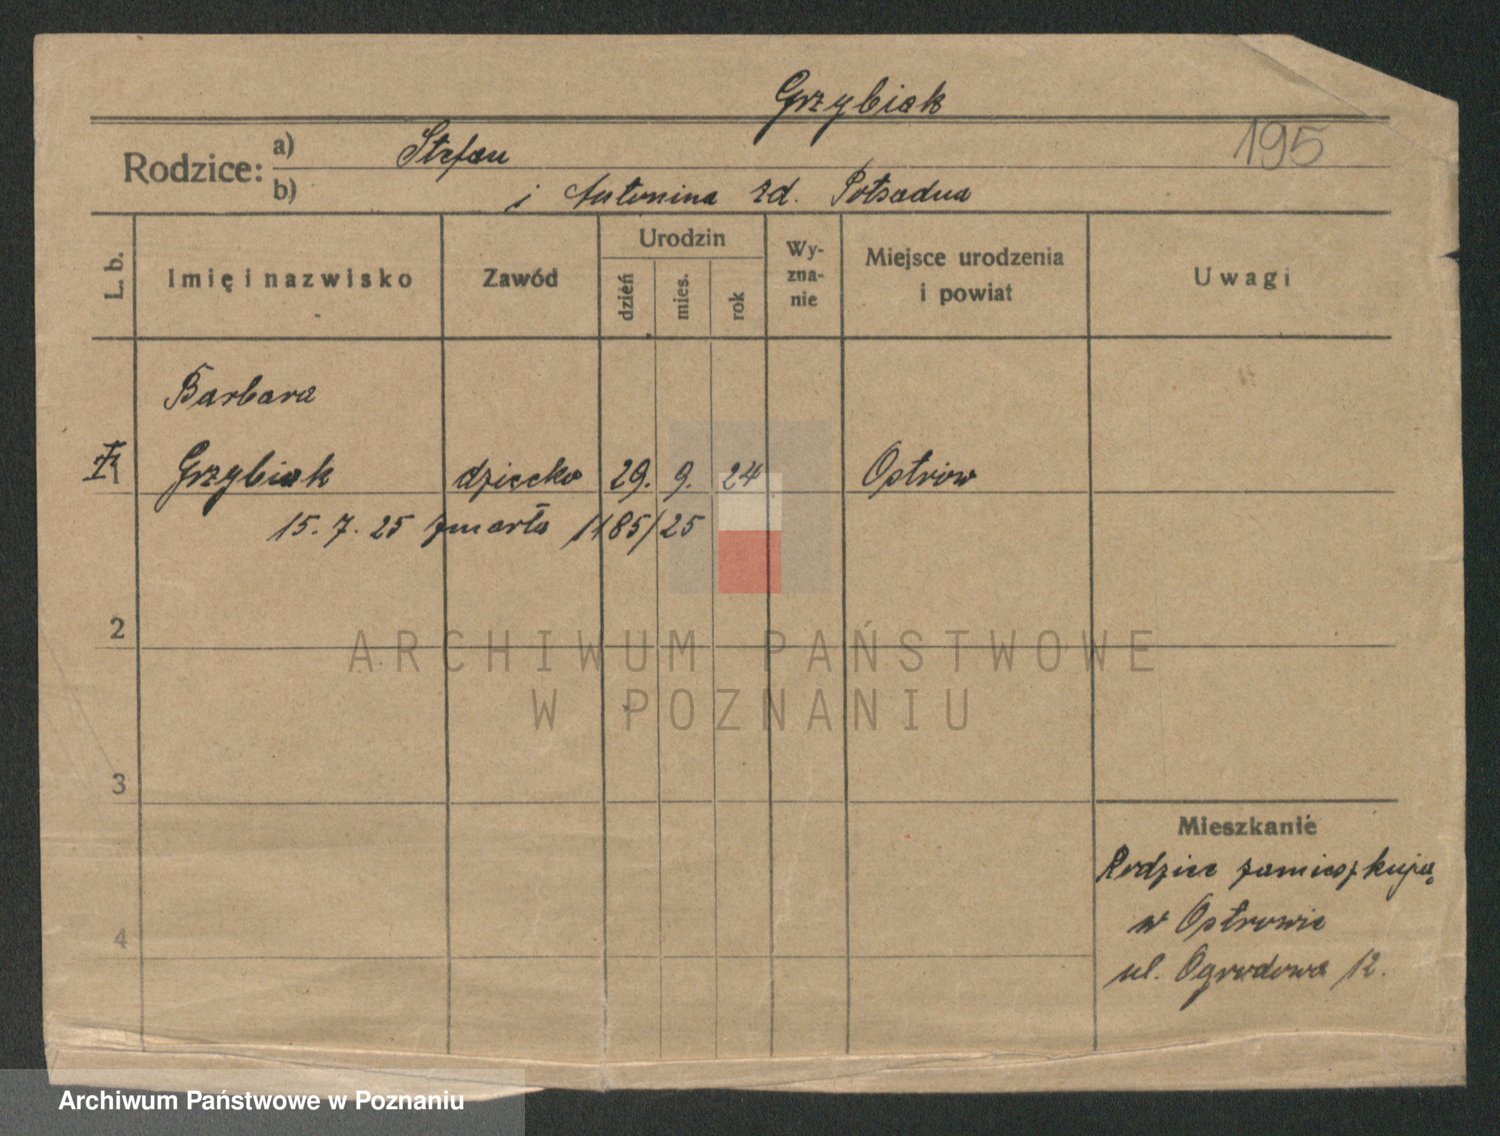 Grzybiak
195
Rodzice: a) Stefan
b) i Antonina zd. Potsadna
L. b.
Imię i nazwisko
Zawód
Urodzin
dzień
mies.
rok
Wy-
zna-
nie
Miejsce urodzenia
i powiat
Uwagi
Barbara
Grzybiak dziecko 29. 9. 24 Ostrów
15. 7. 25 zmarła 1185/25
2
3
4
Mieszkanie
Rodzice zamieszkują
w Ostrowie
ul. Ogrodowa 12.
ARCHIWUM PAŃSTWOWE
W POZNANIU
Archiwum Państwowe w Poznaniu